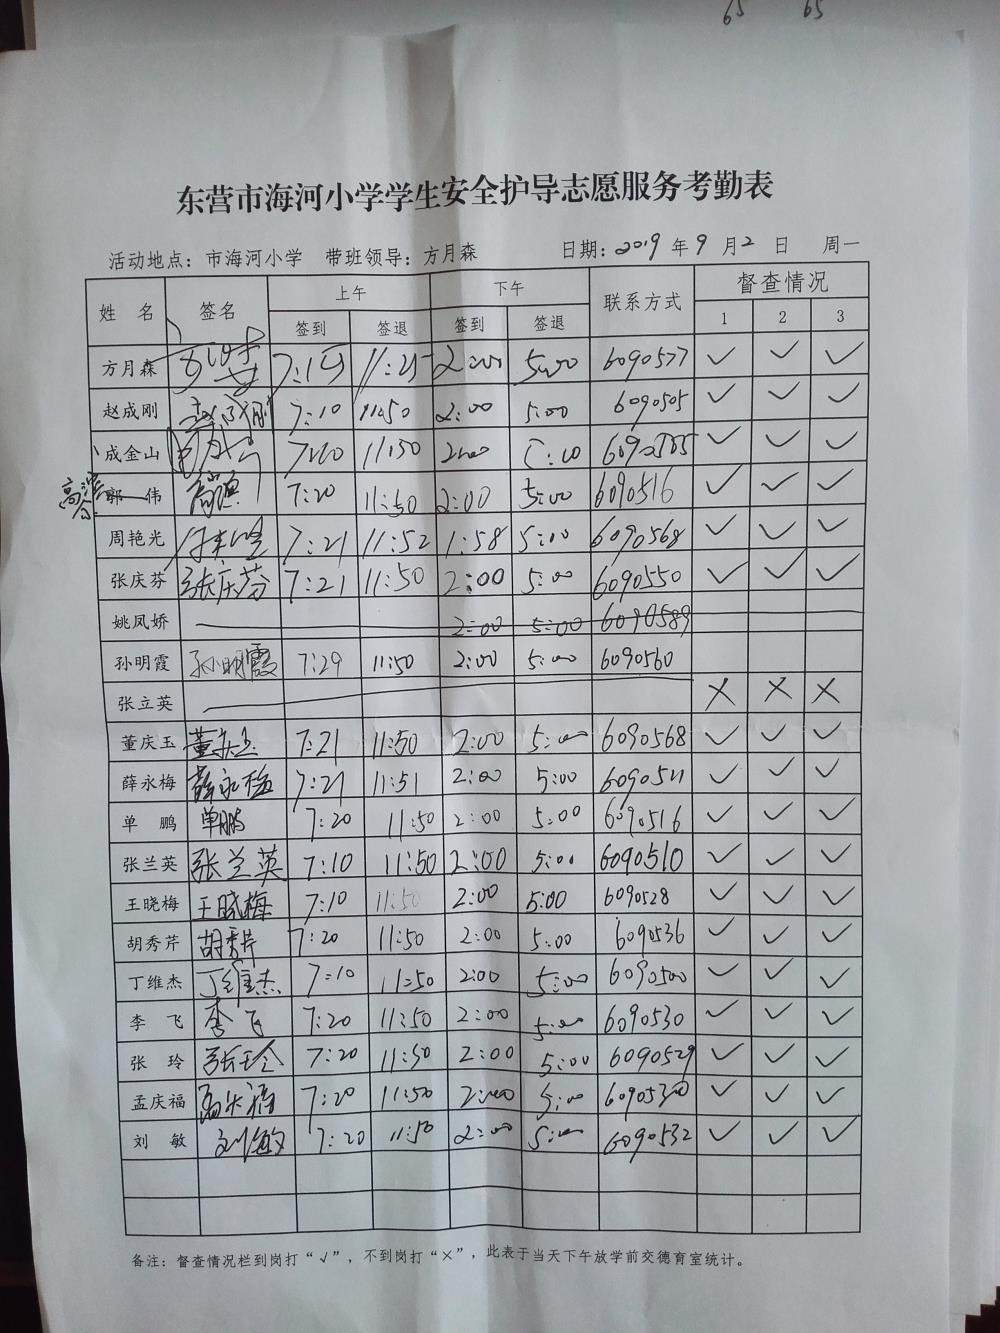 65 65
东营市海河小学学生安全护导志愿服务考勤表
活动地点：市海河小学 带班领导：方月森 日期：2019 年 9 月 2 日 周一
姓 名 签名 上午 下午 联系方式 督查情况
签到 签退 签到 签退 1 2 3
方月森 7:15 11:25 2:00 5:00 6090577 ✓ ✓ ✓
赵成刚 赵成刚 7:10 11:50 2:00 5:00 6090505 ✓ ✓ ✓
成金山 7:20 11:50 2:00 5:00 ✓ ✓ ✓
郭 伟 7:20 11:50 2:00 5:00 6090516 ✓ ✓ ✓
周艳光 7:21 11:52 1:58 5:00 6090568 ✓ ✓ ✓
张庆芬 张庆芬 7:21 11:50 2:00 5:00 6090550 ✓ ✓ ✓
姚凤娇 2:00 5:00 6090589
孙明霞 孙明霞 7:29 11:50 2:00 5:00 6090560
张立英 × × ×
董庆玉 董庆玉 7:21 11:50 2:00 5:00 6090568 ✓ ✓ ✓
薛永梅 薛永梅 7:21 11:51 2:00 5:00 6090511 ✓ ✓ ✓
单 鹏 单鹏 7:20 11:50 2:00 5:00 6090516 ✓ ✓ ✓
张兰英 张兰英 7:10 11:50 2:00 5:00 6090510 ✓ ✓ ✓
王晓梅 王晓梅 7:10 11:50 2:00 5:00 6090528 ✓ ✓ ✓
胡秀芹 胡秀芹 7:20 11:50 2:00 5:00 6090536 ✓ ✓ ✓
丁维杰 丁维杰 7:10 11:50 2:00 5:00 6090500 ✓ ✓ ✓
李 飞 李飞 7:20 11:50 2:00 5:00 6090530 ✓ ✓ ✓
张 玲 张玲 7:20 11:50 2:00 5:00 6090529 ✓ ✓ ✓
孟庆福 孟庆福 7:20 11:50 2:00 5:00 6090530 ✓ ✓ ✓
刘 敏 刘敏 7:20 11:50 2:00 5:00 6090532 ✓ ✓ ✓
备注：督查情况栏到岗打“√”，不到岗打“×”，此表于当天下午放学前交德育室统计。